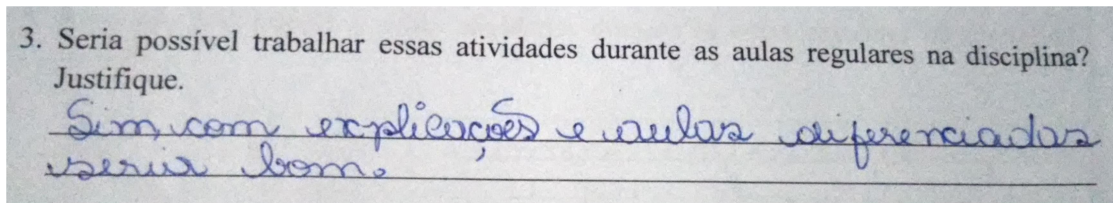 3. Seria possível trabalhar essas atividades durante as aulas regulares na disciplina?
Justifique.
Sim, com explicações e aulas diferenciadas
seria bom.